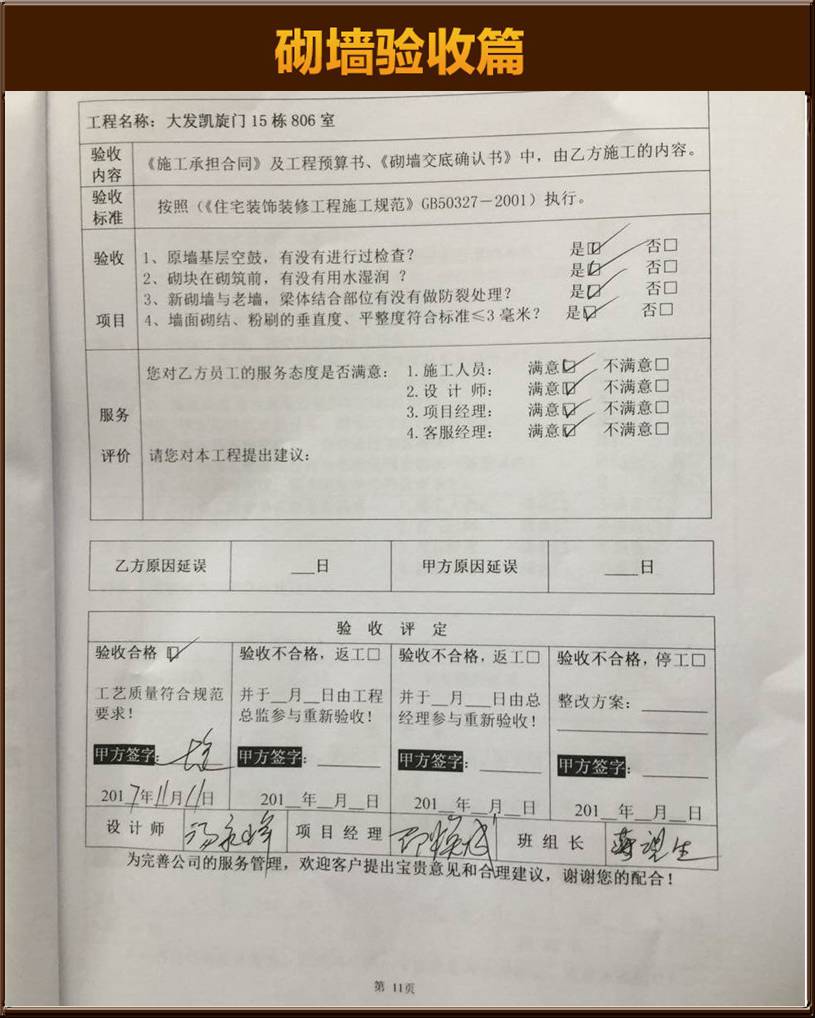 砌墙验收篇
工程名称：大发凯旋门15栋806室
验收内容
《施工承担合同》及工程预算书、《砌墙交底确认书》中，由乙方施工的内容。
验收标准
按照（《住宅装饰装修工程施工规范》GB50327－2001）执行。
验收项目
1、原墙基层空鼓，有没有进行过检查？ 是☑ 否□
2、砌块在砌筑前，有没有用水湿润 ？ 是☑ 否□
3、新砌墙与老墙，梁体结合部位有没有做防裂处理？ 是☑ 否□
4、墙面砌结、粉刷的垂直度、平整度符合标准≤3毫米？ 是☑ 否□
服务评价
您对乙方员工的服务态度是否满意： 1.施工人员： 满意☑ 不满意□
2.设 计 师： 满意☑ 不满意□
3.项目经理： 满意☑ 不满意□
4.客服经理： 满意☑ 不满意□
请您对本工程提出建议：
乙方原因延误 __日 甲方原因延误 __日
验 收 评 定
验收合格 ☑ 验收不合格，返工□ 验收不合格，返工□ 验收不合格，停工□
工艺质量符合规范要求！
并于__月__日由工程总监参与重新验收！
并于__月__日由总经理参与重新验收！
整改方案：
甲方签字： 甲方签字： 甲方签字： 甲方签字：
2017年11月11日 201__年__月__日 201__年__月__日 201__年__月__日
设计师 项目经理 班组长
为完善公司的服务管理，欢迎客户提出宝贵意见和合理建议，谢谢您的配合！
第 11页